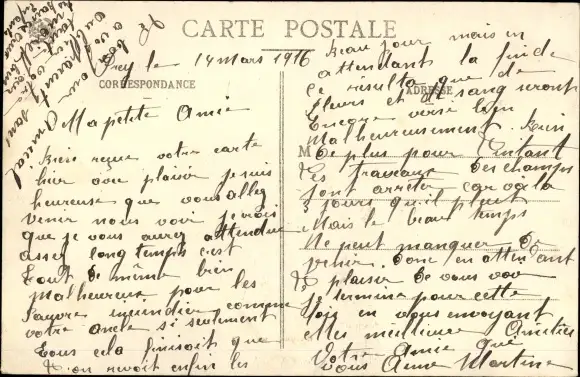 CARTE POSTALE
CORRESPONDANCE
ADRESSE
le 14 mars 1916
Ma petite Amie
Bien reçue votre carte
hier avec plaisir je suis
heureuse que vous alley
venir nous voir je vois
que je vous aurez attendue
assey longtemps c'est
tout de même bien
malheureux pour les
pauvre comme
votre oncle si seulement
tous cela finisoit que
on revoit enfin les
Beau jour mais en
attendant la fin de
ce resulta que de
pleurs et de sang seront
Encore versé bien
Malheureusement Rien
de plus pour l'instant
les travaux des champs
sont arrêter car voila
3 jours qu'il pleut
Mais le beau temps
Ne peut manquer de
venir. Donc en attendant
le plaisir de vous voir
je termine pour cette
fois en vous envoyant
Mes meilleure Amitiés
Votre Amie que
vous Aime Martine